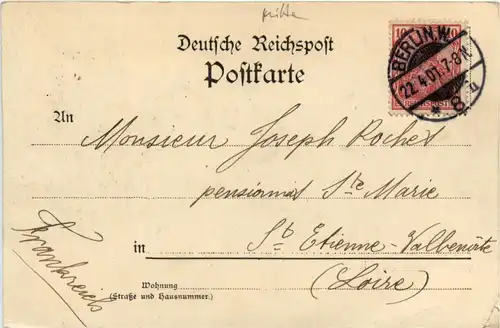 Deutsche Reichspost
Postkarte
10
BERLIN.W.
22.4.01.7-8N.
8
An
Monsieur Joseph Rochet
pensionnat Ste Marie
in St Etienne-Valbenoite
(Loire)
Frankreich
Wohnung
(Straße und Hausnummer.)